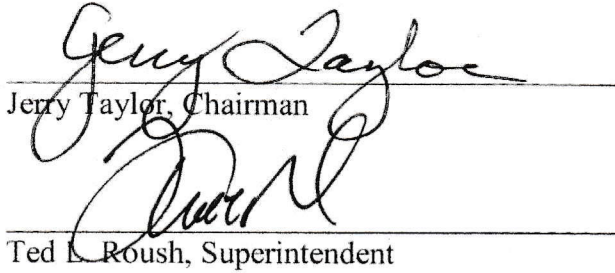 Jerry Taylor
Jerry Taylor, Chairman
Ted L. Roush, Superintendent